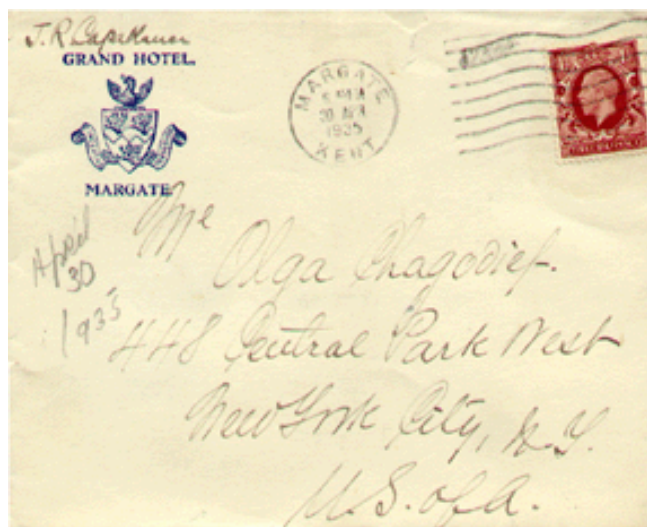 J. R. Capablanca
GRAND HOTEL.
MARGATE
MARGATE
30 APR
1935
KENT
April
30
1935
Me Olga Chagodief.
448 Central Park West
New York City, N.Y.
U.S. of A.